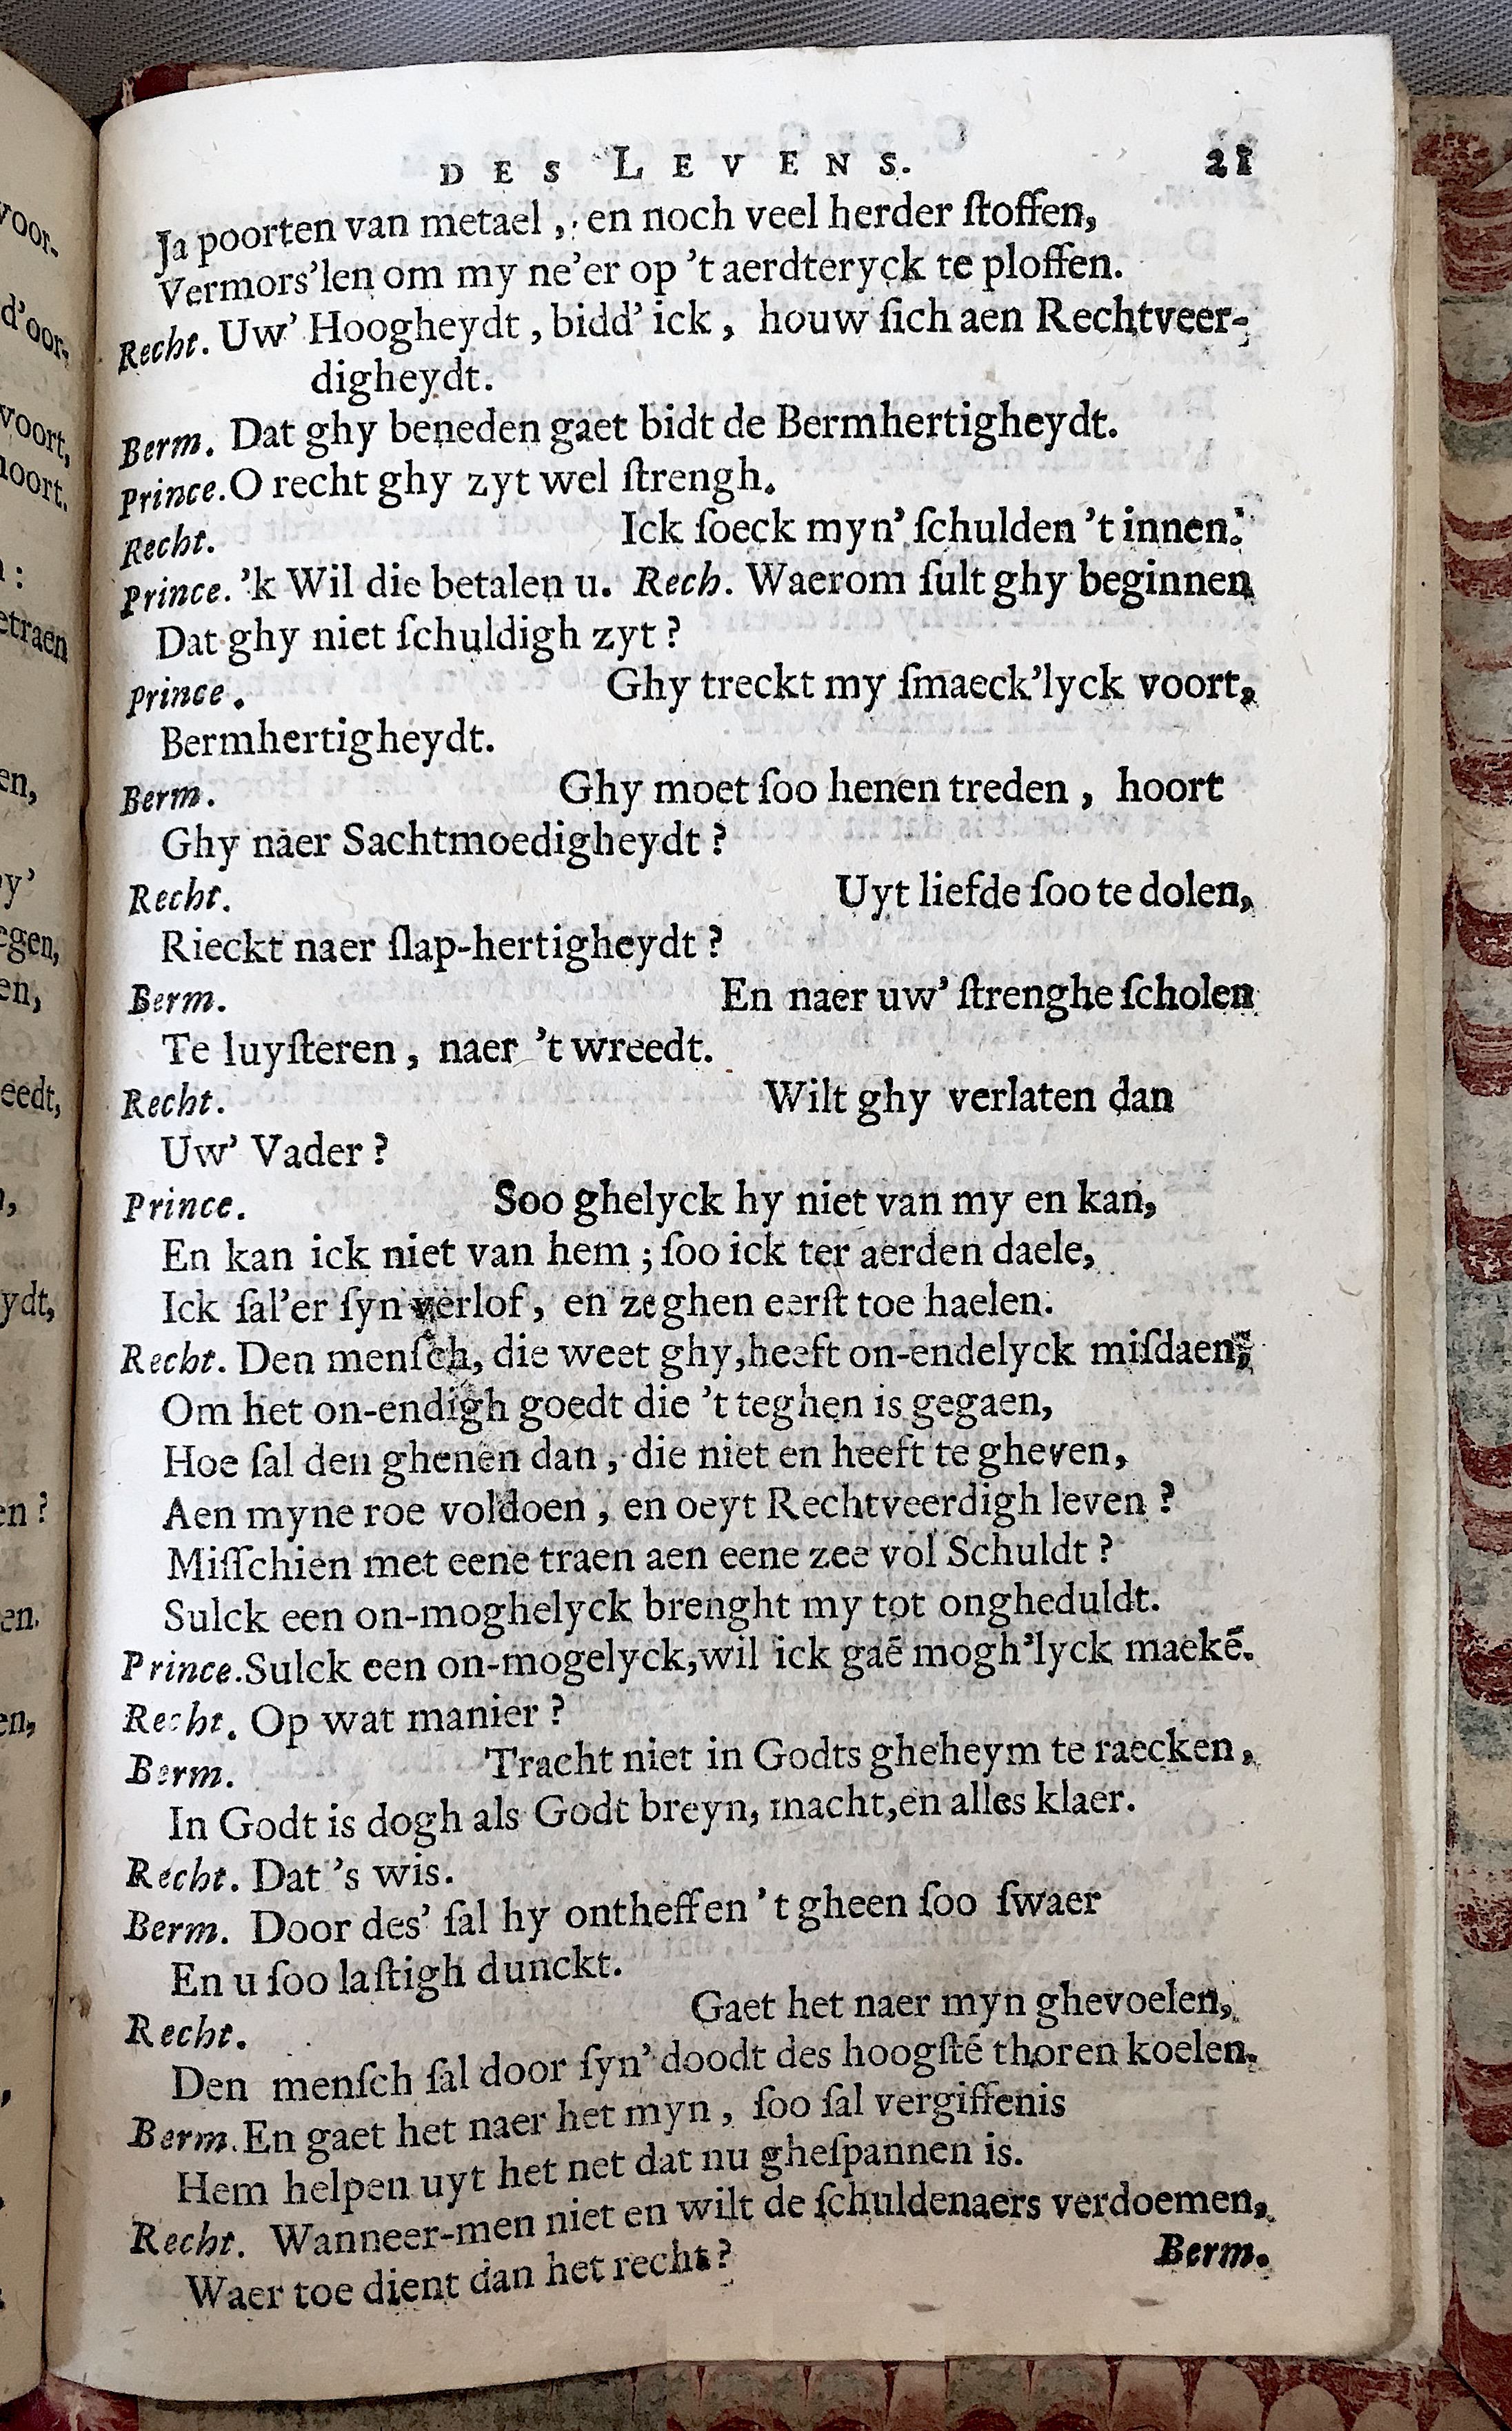 DES LEVENS. 21
Ja poorten van metael, en noch veel herder ſtoffen,
Vermors'len om my ne'er op 't aerdteryck te ploffen.
Recht. Uw' Hoogheydt, bidd' ick, houw ſich aen Rechtveer-
digheydt.
Berm. Dat ghy beneden gaet bidt de Bermhertigheydt.
Prince. O recht ghy zyt wel ſtrengh.
Recht. Ick ſoeck myn' ſchulden 't innen.
Prince. 'k Wil die betalen u. Rech. Waerom ſult ghy beginnen
Dat ghy niet ſchuldigh zyt?
Prince. Ghy treckt my ſmaeck'lyck voort,
Bermhertigheydt.
Berm. Ghy moet ſoo henen treden, hoort
Ghy naer Sachtmoedigheydt?
Recht. Uyt liefde ſoo te dolen,
Rieckt naer ſlap-hertigheydt?
Berm. En naer uw' ſtrenghe ſcholen
Te luyſteren, naer 't wreedt.
Recht. Wilt ghy verlaten dan
Uw' Vader?
Prince. Soo ghelyck hy niet van my en kan,
En kan ick niet van hem; ſoo ick ter aerden daele,
Ick ſal'er ſyn verlof, en zeghen eerſt toe haelen.
Recht. Den menſch, die weet ghy, heeft on-endelyck miſdaen,
Om het on-endigh goedt die 't teghen is gegaen,
Hoe ſal den ghenen dan, die niet en heeft te gheven,
Aen myne roe voldoen, en oeyt Rechtveerdigh leven?
Miſſchien met eene traen aen eene zee vol Schuldt?
Sulck een on-moghelyck brenght my tot ongheduldt.
Prince. Sulck een on-mogelyck, wil ick gaē mogh'lyck maekē.
Recht. Op wat manier?
Berm. Tracht niet in Godts gheheym te raecken,
In Godt is dogh als Godt breyn, macht, en alles klaer.
Recht. Dat 's wis.
Berm. Door des' ſal hy ontheffen 't gheen ſoo ſwaer
En u ſoo laſtigh dunckt.
Recht. Gaet het naer myn ghevoelen,
Den menſch ſal door ſyn' doodt des hoogſtē thoren koelen.
Berm. En gaet het naer het myn, ſoo ſal vergiffenis
Hem helpen uyt het net dat nu gheſpannen is.
Recht. Wanneer-men niet en wilt de ſchuldenaers verdoemen,
Waer toe dient dan het recht?
Berm.